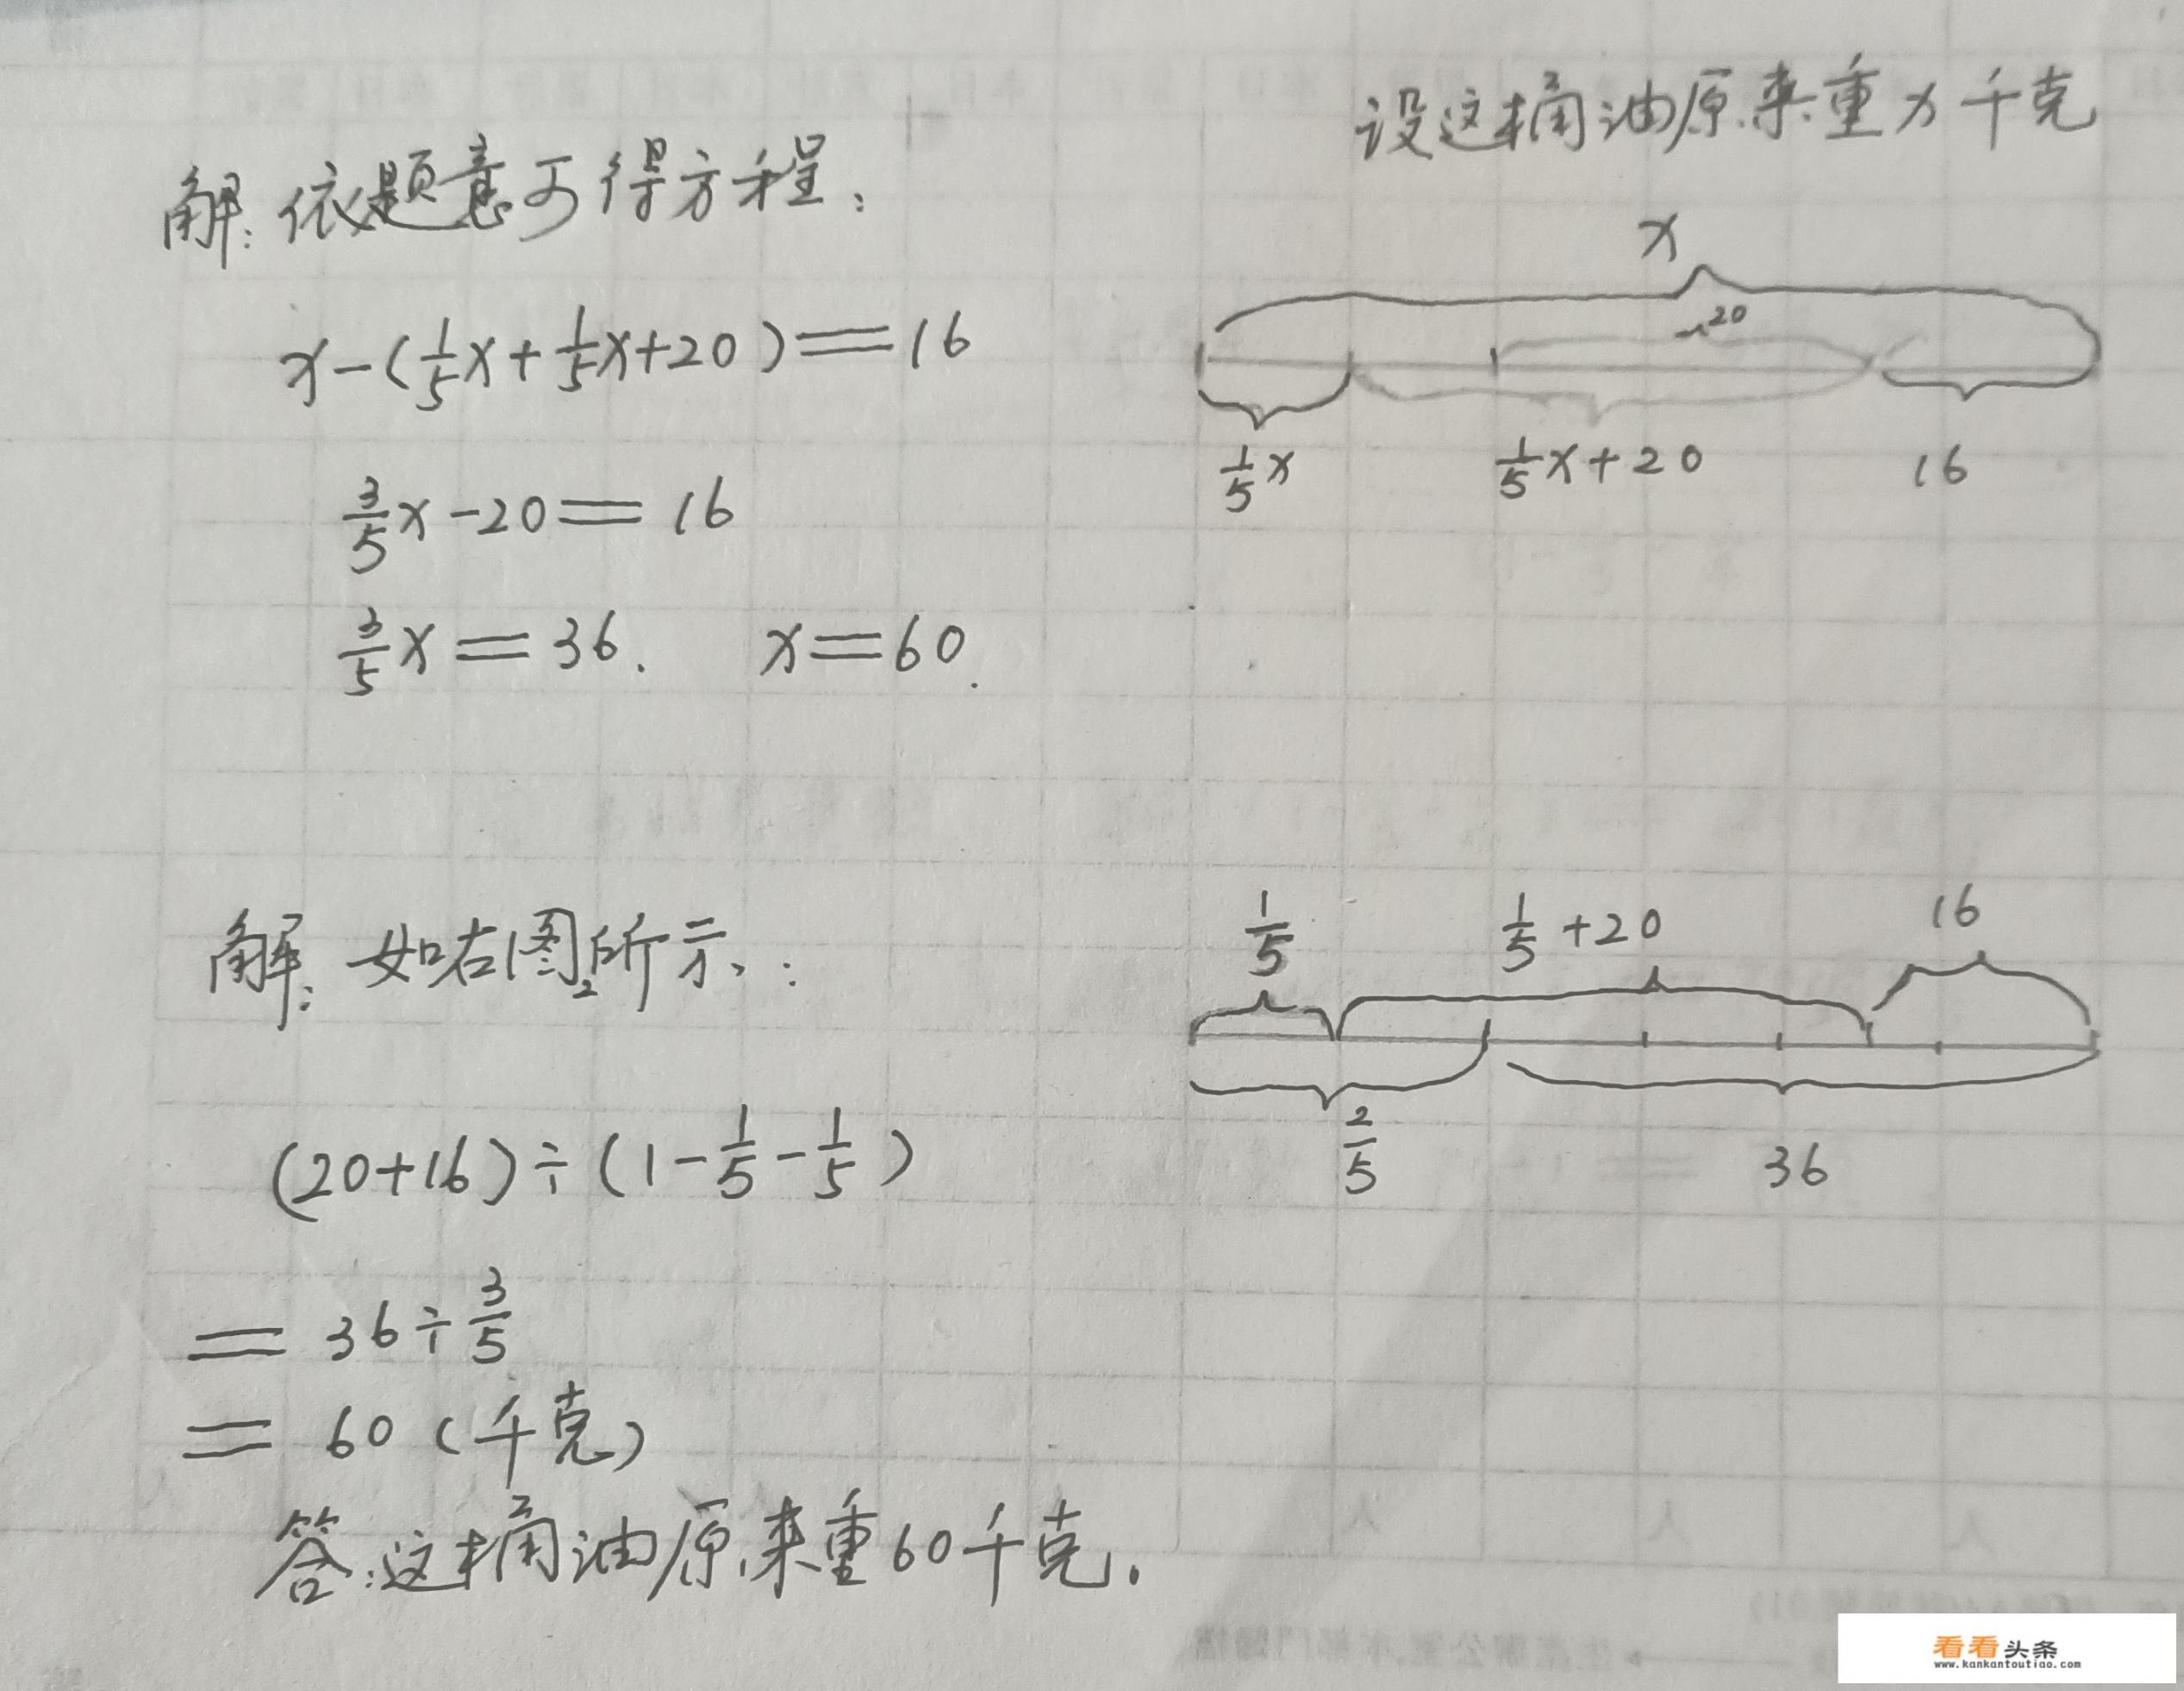 设这桶油原来重x千克
解:依题意可得方程:
x-(1/5x+1/5x+20)=16
3/5x-20=16
3/5x=36. x=60.
x
20
1/5x 1/5x+20 16
解:如右图2所示:
(20+16)÷(1-1/5-1/5)
=36÷3/5
=60(千克)
答:这桶油原来重60千克.
1/5 1/5+20 16
2/5 36
看看头条
www.kankantoutiao.com